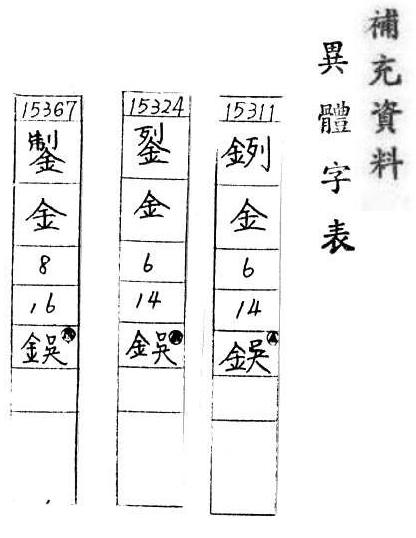 補充資料
異體字表
15311
金
6
14
鋘
15324
銐
金
6
14
鋘
15367
金
8
16
鋘